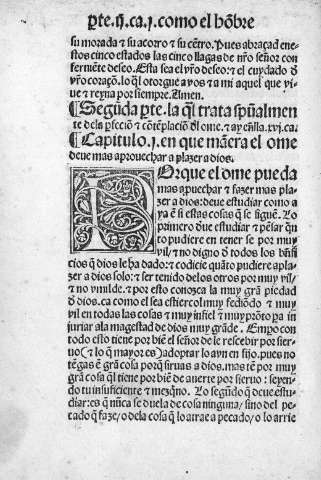 p̱te.ij.ca.j.como el hõbre
su morada ⁊ su acorro ⁊ su cẽtro. Pues abraçad ene-
stos cinco estados las cinco llagas de nr̃o señor con
feruiẽte deseo. Esta sea el vr̃o deseo: ⁊ el cuydado ð
vr̃o coraçõ. lo q̃l otorgue a vos ⁊ a mi aquel que vi-
ue ⁊ reyna por siempre. Amen.
¶Segũda p̱te. la q̃l trata spũalmen-
te dela p̱feciõ ⁊ cõtẽplaciõ ðl ome. ⁊ ay eñlla. xvj. ca.
¶Capitulo.j. en que mãera el ome
deue mas aprouechar ⁊ plazer a dios.
POrque el ome pueda
mas ap̱uechar ⁊ fazer mas pla-
zer a dios: deue estudiar como a
ya ẽ si estas cosas q̃ se siguẽ. Lo
primero ðue estudiar ⁊ pẽsar q̃n
to pudiere en tener se por muy
vil/ ⁊ no digno ð todos los bñfi
cios q̃ dios le ha dado: ⁊ codicie quãto pudiere apla-
zer a dios solo: ⁊ ser tenido de los otros por muy vil/
⁊ no vmilde. ⁊ por esto conozca la muy grã piedad
ð dios. ca como el sea estiercol muy fediõdo ⁊ muy
vil en todas las cosas ⁊ muy infiel ⁊ muy prõto pa in
juriar ala magestad de dios muy grãde. Empo con
todo esto tiene por biẽ el señor de le rescebir por sier-
uo(⁊ lo q̃ mayor es)adoptar lo avn en fijo. pues no
tẽgas ẽ grã cosa porq̃ siruas a dios. mas tẽ por muy
grã cosa q̃l tiene por biẽ de auerte por sieruo: seyen-
do tu insuficiente ⁊ mezq̃no. Lo segũdo q̃ deue estu-
diar: es q̃ nũca se duela de cosa ninguna/ sino del pe-
cado q̃ faze/ o dela cosa q̃ lo atrae a pecado/ o lo arrie